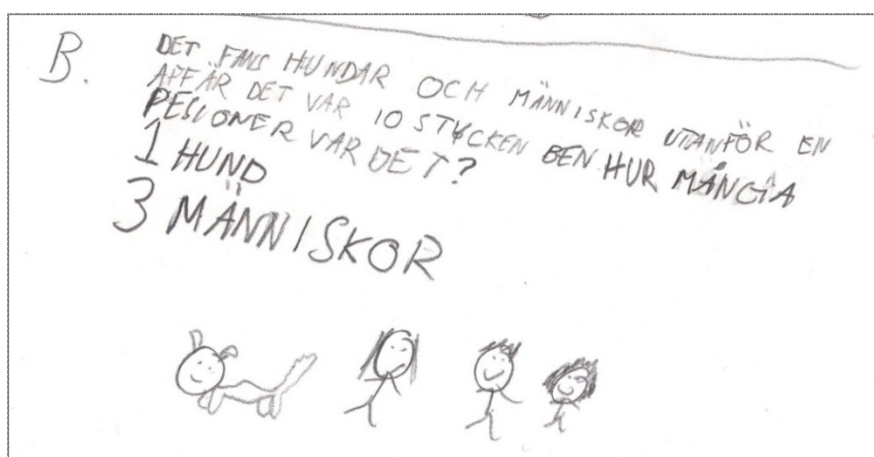 B.
DET FANS HUNDAR OCH MÄNNISKOR UTANFÖR EN
AFFÄR DET VAR 10 STYCKEN BEN HUR MÅNGA
PESLONER VAR DET?
1 HUND
3 MÄNNISKOR